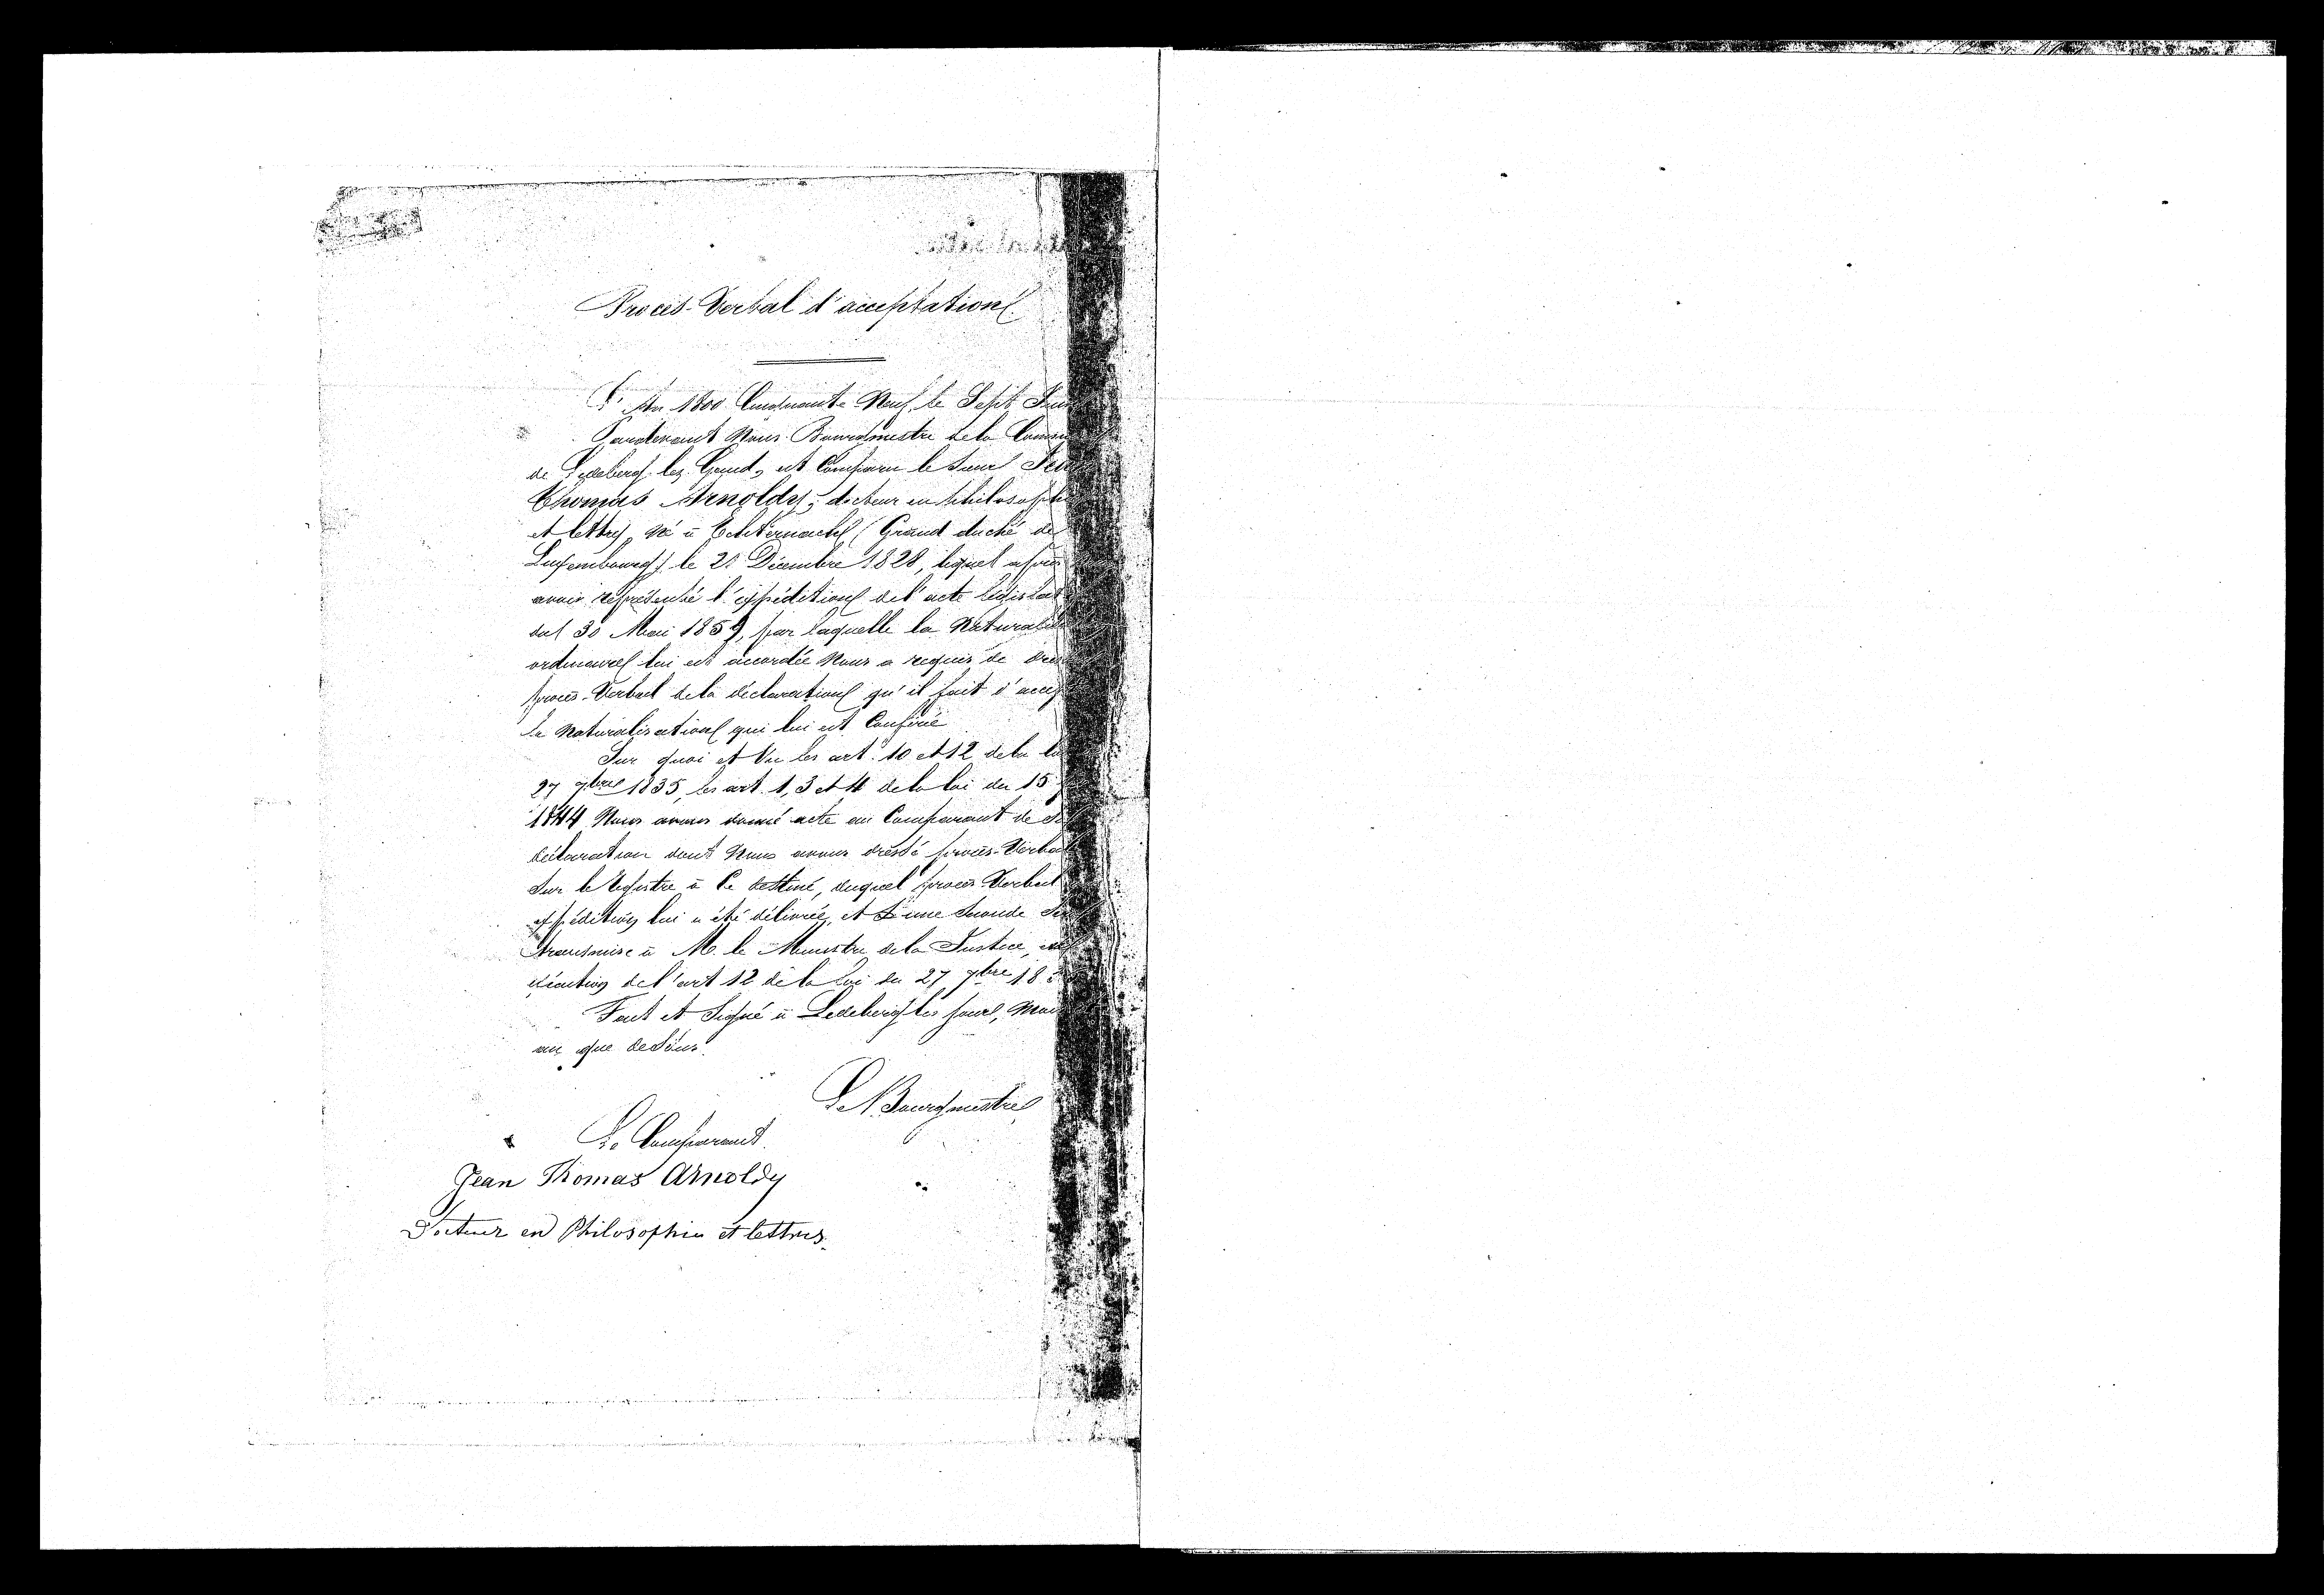 Procès-Verbal d'acceptation.
L'An 1800 Cinquante Neuf, le Sept
Pardevant Nous Bourgmestre de la
de Ledeberg lez Gand, est Comparu le Sieur
Thomas Arnoldy, docteur en
et lettres, né à Echternach (Grand duché de
Luxembourg) le 21 Décembre 1828, lequel après
avoir représenté l'expédition de l'acte
du 30 Mai 1859, par laquelle la
ordinaire lui est accordée Nous a requis de
procès-Verbal de la déclaration qu'il fait
la Naturalisation qui lui est Conférée
Sur quoi et Vu les art. 10 et 12 de la
27 7bre 1835, les art. 1, 3 et 4 de la loi du 15
1844 Nous avons donné acte au Comparant de
déclaration dont Nous avons dressé procès-Verbal
Sur le Registre à Ce destiné, duquel procès-Verbal
expédition lui a été délivrée, et d'une Seconde
transmise à M. le Ministre de la Justice,
de l'art 12 de la loi du 27 7bre 18
Fait et Signé à Ledeberg les jour,
an que dessus.
Le Bourgmestre
Le Comparant
Jean Thomas Arnoldy
Docteur en Philosophie et lettres.